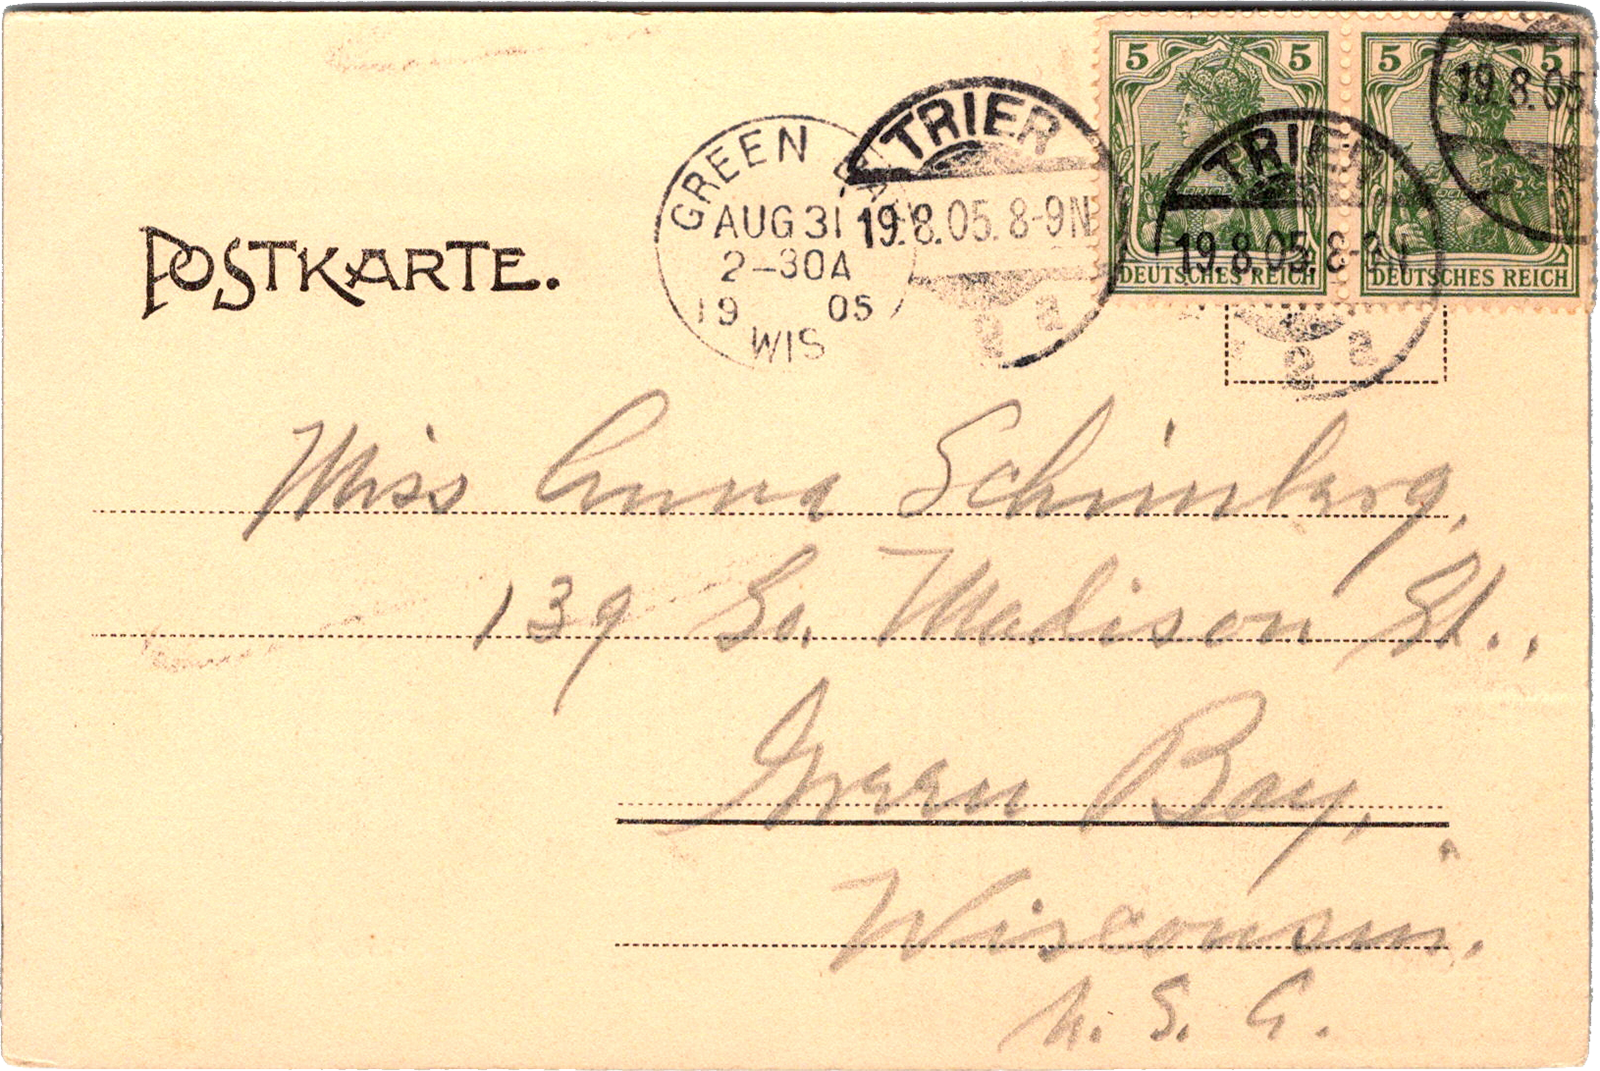 5 5 5 5
DEUTSCHES REICH DEUTSCHES REICH
19.8.05
TRIER
19.8.05. 8-9N
a
TRIER
19.8.05. 8-9N
a
GREEN BAY
AUG 31
2-30A
19 05
WIS
POSTKARTE.
Miss Anna Schimberg,
139 So. Madison St.,
Green Bay,
Wisconsin.
U. S. A.